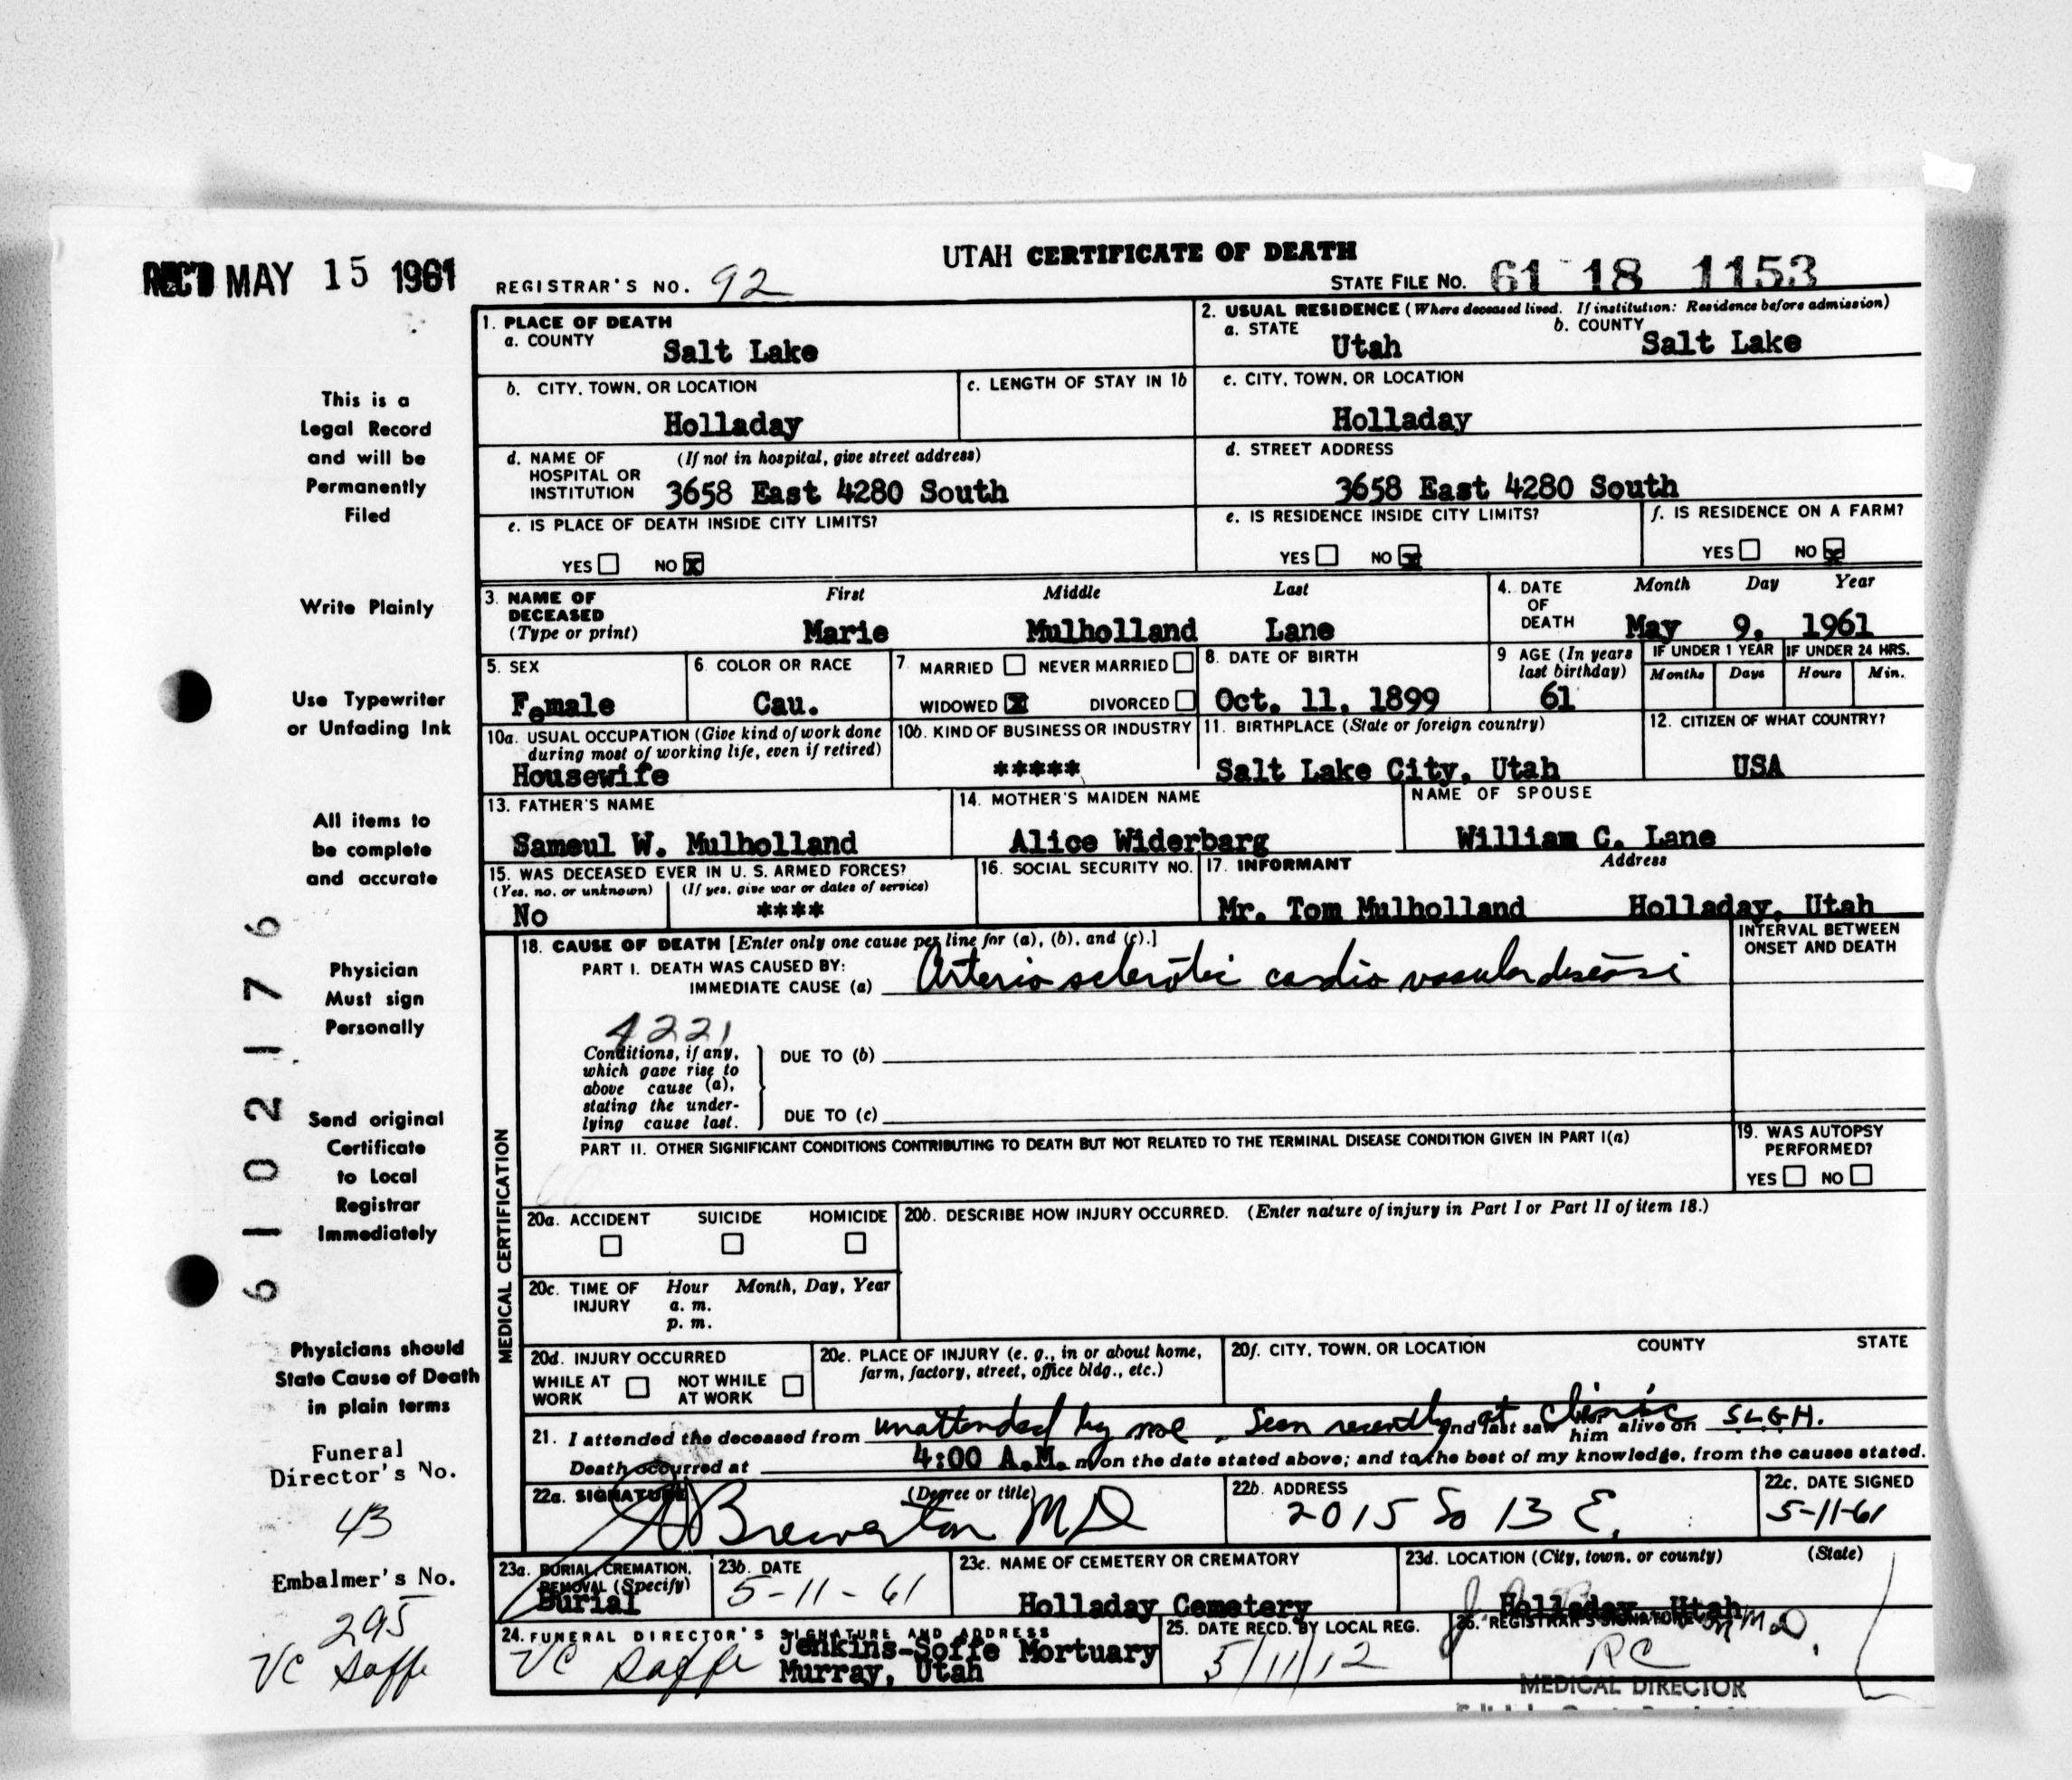 UTAH CERTIFICATE OF DEATH
REC'D MAY 15 1961
REGISTRAR'S NO. 92
STATE FILE No. 61 18 1153
1. PLACE OF DEATH
a. COUNTY
Salt Lake
2. USUAL RESIDENCE (Where deceased lived. If institution: Residence before admission)
a. STATE
Utah
b. COUNTY
Salt Lake
b. CITY, TOWN, OR LOCATION
Holladay
c. LENGTH OF STAY IN 1b
c. CITY, TOWN, OR LOCATION
Holladay
d. NAME OF (If not in hospital, give street address)
HOSPITAL OR
INSTITUTION 3658 East 4280 South
d. STREET ADDRESS
3658 East 4280 South
e. IS PLACE OF DEATH INSIDE CITY LIMITS?
YES NO X
e. IS RESIDENCE INSIDE CITY LIMITS?
YES NO X
f. IS RESIDENCE ON A FARM?
YES NO X
3. NAME OF First Middle Last
DECEASED
(Type or print) Marie Mulholland Lane
4. DATE Month Day Year
OF
DEATH May 9, 1961
5. SEX
Female
6. COLOR OR RACE
Cau.
7. MARRIED NEVER MARRIED
WIDOWED X DIVORCED
8. DATE OF BIRTH
Oct. 11, 1899
9 AGE (In years
last birthday)
61
IF UNDER 1 YEAR
Months Days
IF UNDER 24 HRS.
Hours Min.
10a. USUAL OCCUPATION (Give kind of work done
during most of working life, even if retired)
Housewife
10b. KIND OF BUSINESS OR INDUSTRY
*****
11. BIRTHPLACE (State or foreign country)
Salt Lake City, Utah
12. CITIZEN OF WHAT COUNTRY?
USA
13. FATHER'S NAME
Sameul W. Mulholland
14. MOTHER'S MAIDEN NAME
Alice Widerbarg
NAME OF SPOUSE
William C. Lane
15. WAS DECEASED EVER IN U. S. ARMED FORCES?
(Yes, no, or unknown) (If yes, give war or dates of service)
No ****
16. SOCIAL SECURITY NO.
17. INFORMANT Address
Mr. Tom Mulholland Holladay, Utah
MEDICAL CERTIFICATION
18. CAUSE OF DEATH [Enter only one cause per line for (a), (b), and (c).]
PART I. DEATH WAS CAUSED BY:
IMMEDIATE CAUSE (a) Arterio sclerotic cardio vascular disease
INTERVAL BETWEEN
ONSET AND DEATH
4221
Conditions, if any,
which gave rise to
above cause (a),
stating the under-
lying cause last.
DUE TO (b)
DUE TO (c)
PART II. OTHER SIGNIFICANT CONDITIONS CONTRIBUTING TO DEATH BUT NOT RELATED TO THE TERMINAL DISEASE CONDITION GIVEN IN PART I(a)
19. WAS AUTOPSY
PERFORMED?
YES NO
20a. ACCIDENT SUICIDE HOMICIDE
20b. DESCRIBE HOW INJURY OCCURRED. (Enter nature of injury in Part I or Part II of item 18.)
20c. TIME OF Hour Month, Day, Year
INJURY a. m.
p. m.
20d. INJURY OCCURRED
WHILE AT NOT WHILE
WORK AT WORK
20e. PLACE OF INJURY (e. g., in or about home,
farm, factory, street, office bldg., etc.)
20f. CITY, TOWN, OR LOCATION COUNTY STATE
21. I attended the deceased from unattended by me. Seen recently at Clinic and last saw her him alive on S.L.G.H.
Death occurred at 4:00 A.M. m on the date stated above; and to the best of my knowledge, from the causes stated.
22a. SIGNATURE (Degree or title)
Brewerton MD
22b. ADDRESS
2015 So 13 E.
22c. DATE SIGNED
5-11-61
23a. BURIAL, CREMATION,
REMOVAL (Specify)
Burial
23b. DATE
5-11-61
23c. NAME OF CEMETERY OR CREMATORY
Holladay Cemetery
23d. LOCATION (City, town, or county) (State)
Holladay, Utah
24. FUNERAL DIRECTOR'S SIGNATURE AND ADDRESS
VC Soffe
Jenkins-Soffe Mortuary
Murray, Utah
25. DATE RECD. BY LOCAL REG.
5/11/12
26. REGISTRAR'S SIGNATURE
RC
MEDICAL DIRECTOR
This is a
Legal Record
and will be
Permanently
Filed
Write Plainly
Use Typewriter
or Unfading Ink
All items to
be complete
and accurate
Physician
Must sign
Personally
Send original
Certificate
to Local
Registrar
Immediately
Physicians should
State Cause of Death
in plain terms
Funeral
Director's No.
43
Embalmer's No.
295
VC Soffe
6102176